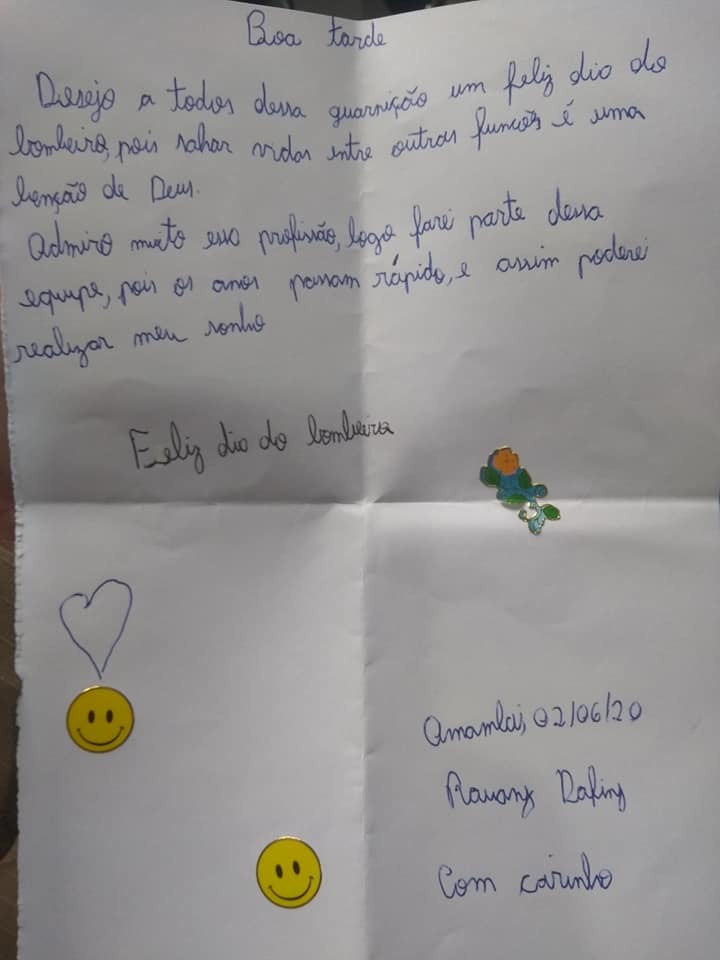 Boa tarde
Desejo a todos dessa guarnição um feliz dia do
bombeiro, pois salvar vidas entre outras funcões é uma
benção de Deus.
Admiro muito essa profissão, logo farei parte dessa
equipe, pois os anos passam rápido, e assim poderei
realizar meu sonho
Feliz dia do bombeiro
02/06/20
Com carinho